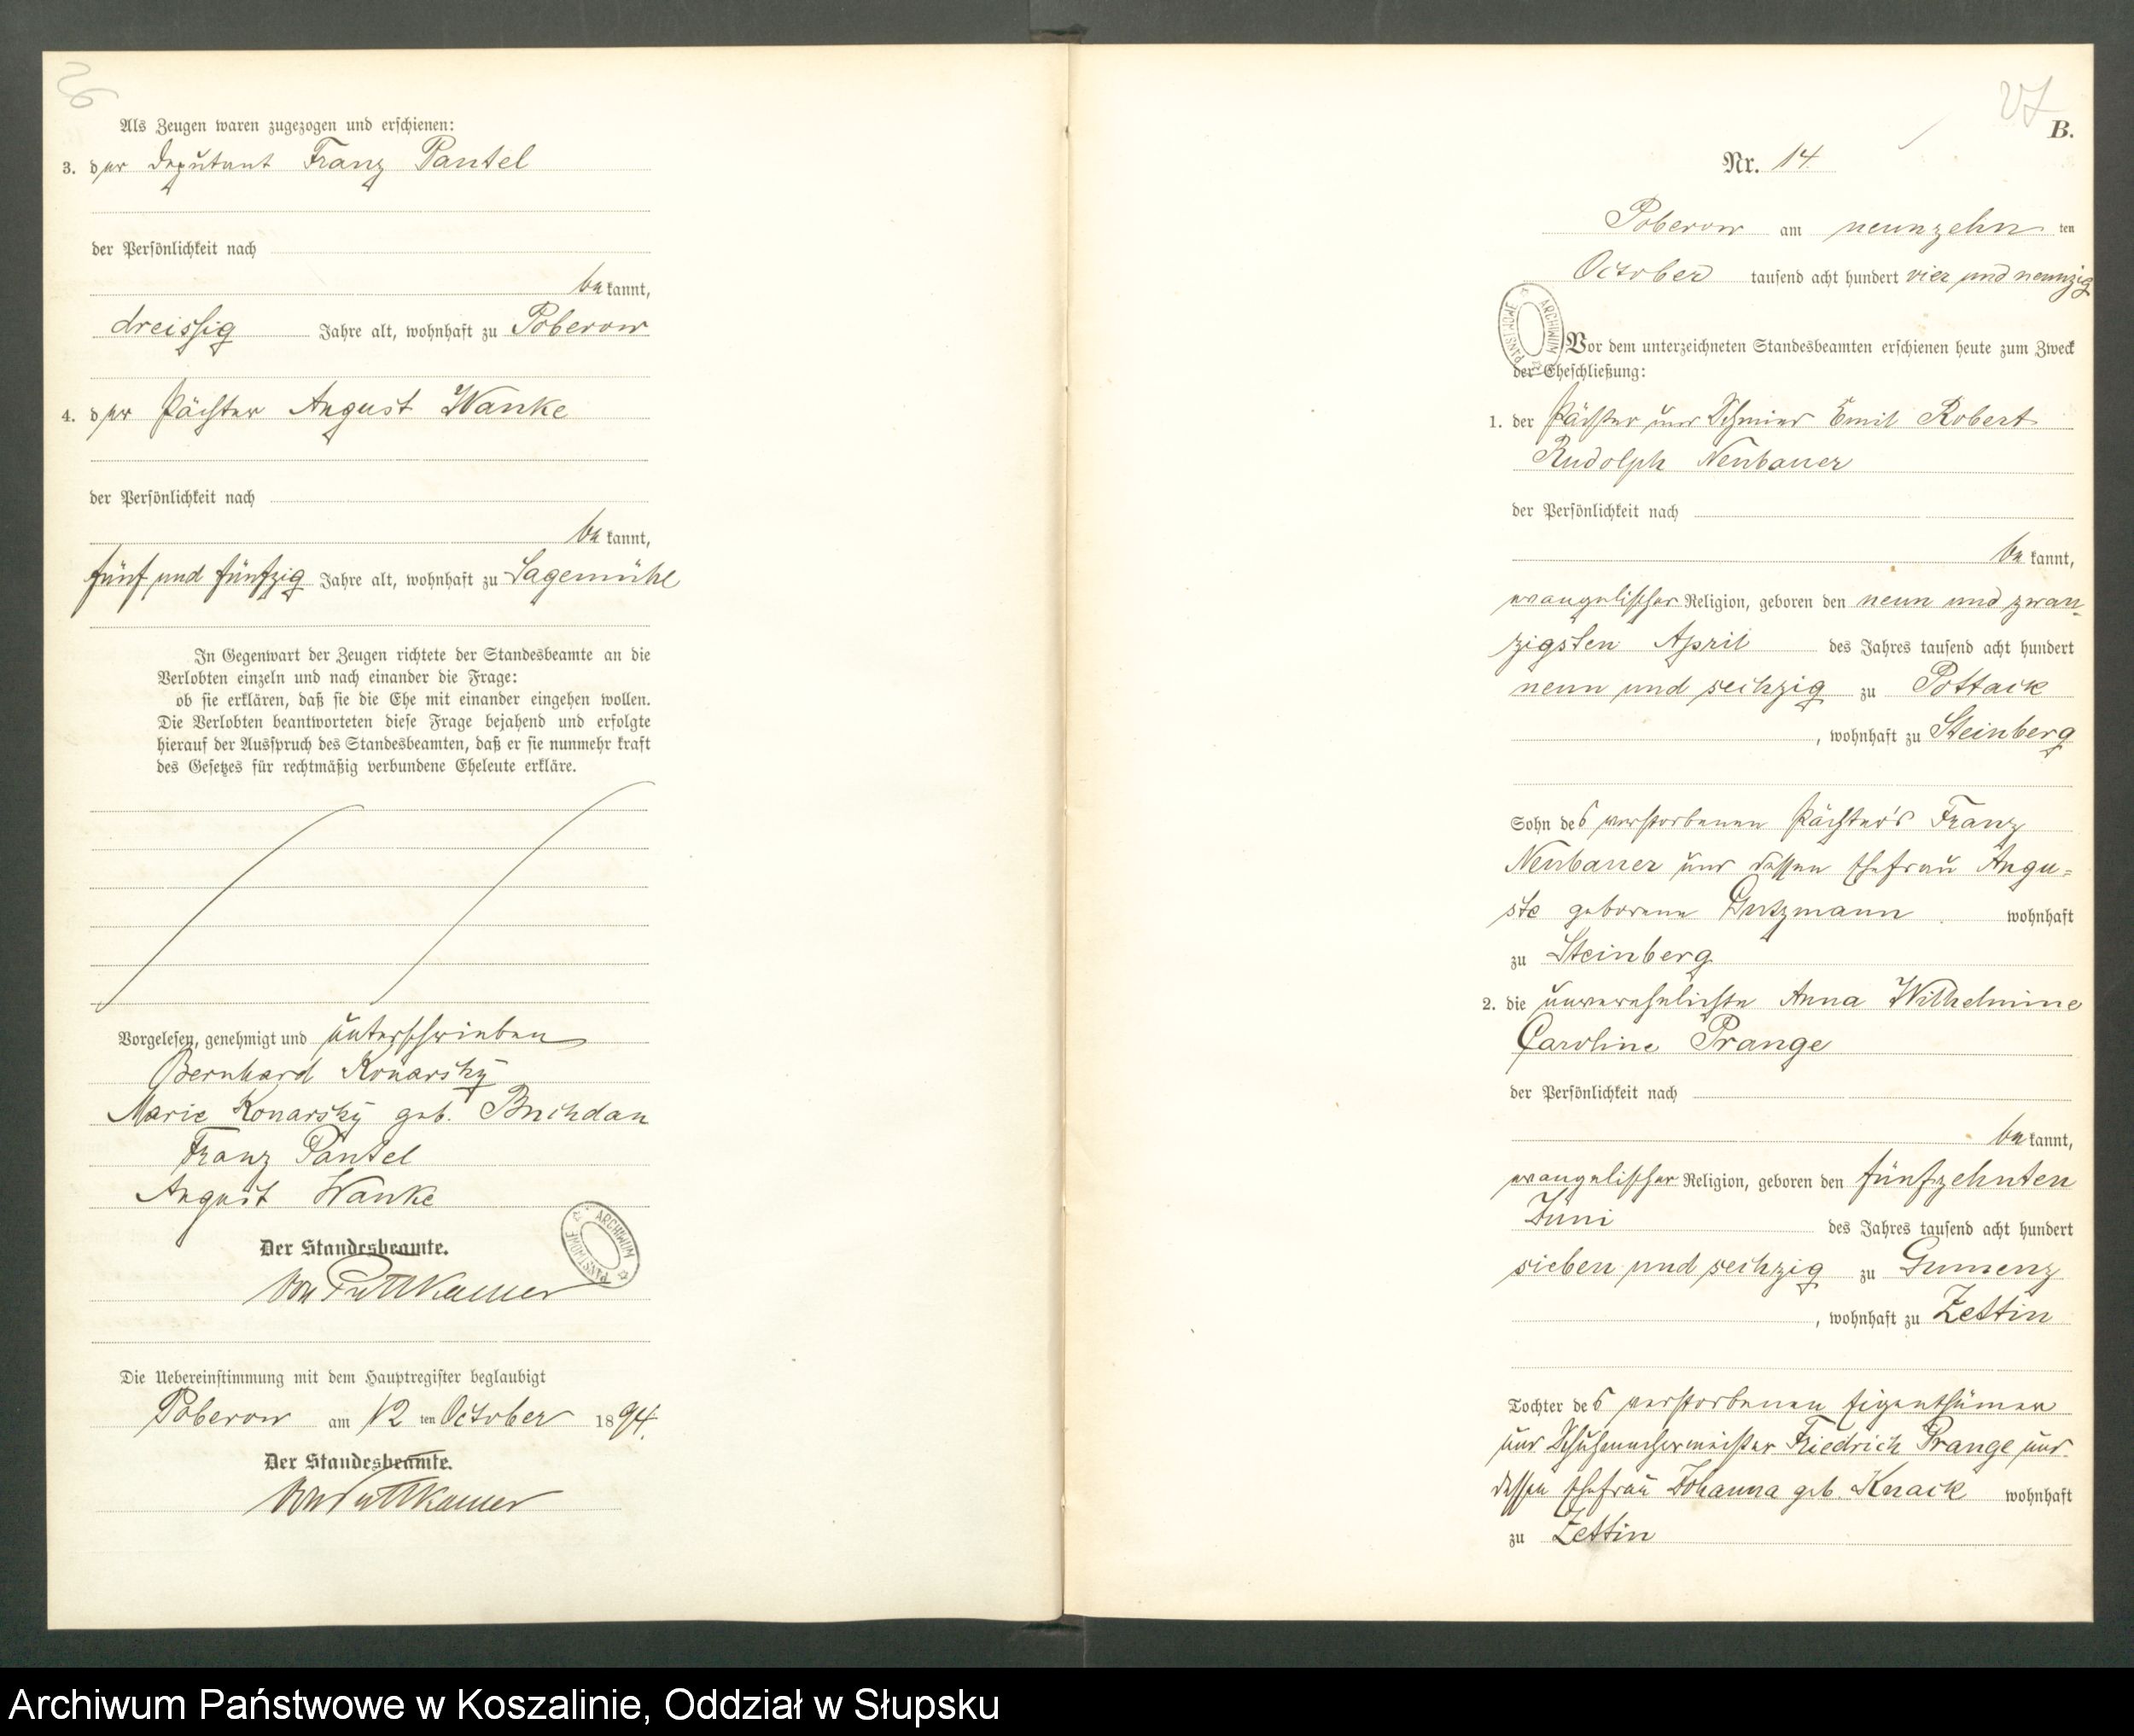 26
Als Zeugen waren zugezogen und erschienen:
3. der Deputant Franz Pantel
der Persönlichkeit nach
be kannt,
dreissig Jahre alt, wohnhaft zu Poberow
4. der Pächter August Wanke
der Persönlichkeit nach
be kannt,
fünf und fünfzig Jahre alt, wohnhaft zu Sagemühl
In Gegenwart der Zeugen richtete der Standesbeamte an die
Verlobten einzeln und nach einander die Frage:
ob sie erklären, daß sie die Ehe mit einander eingehen wollen.
Die Verlobten beantworteten diese Frage bejahend und erfolgte
hierauf der Ausspruch des Standesbeamten, daß er sie nunmehr kraft
des Gesetzes für rechtmäßig verbundene Eheleute erkläre.
Vorgelesen, genehmigt und unterschrieben
Bernhard Konarsky
Marie Konarsky geb. Buchdan
Franz Pantel
August Wanke
Der Standesbeamte.
von Puttkamer
ARCHIWUM PAŃSTWOWE
Die Uebereinstimmung mit dem Hauptregister beglaubigt
Poberow am 12 ten October 1894.
Der Standesbeamte.
von Puttkamer
27
B.
Nr. 14
Poberow am neunzehn ten
October tausend acht hundert vier und neunzig
ARCHIWUM PAŃSTWOWE
Vor dem unterzeichneten Standesbeamten erschienen heute zum Zweck
der Eheschließung:
1. der Pächter und Schmied Emil Robert
Rudolph Neubauer
der Persönlichkeit nach
be kannt,
evangelischer Religion, geboren den neun und zwan-
zigsten April des Jahres tausend acht hundert
neun und sechzig zu Pottack
, wohnhaft zu Steinberg
Sohn des verstorbenen Pächter's Franz
Neubauer und dessen Ehefrau Augu=
ste geborene Gutzmann wohnhaft
zu Steinberg
2. die unverehelichte Anna Wilhelmine
Caroline Prange
der Persönlichkeit nach
be kannt,
evangelischer Religion, geboren den fünfzehnten
Juni des Jahres tausend acht hundert
sieben und sechzig zu Gumenz
, wohnhaft zu Zettin
Tochter des verstorbenen Eigenthümer
und Schuhmachermeister Friedrich Prange und
dessen Ehefrau Johanna geb. Knack wohnhaft
zu Zettin
Archiwum Państwowe w Koszalinie, Oddział w Słupsku